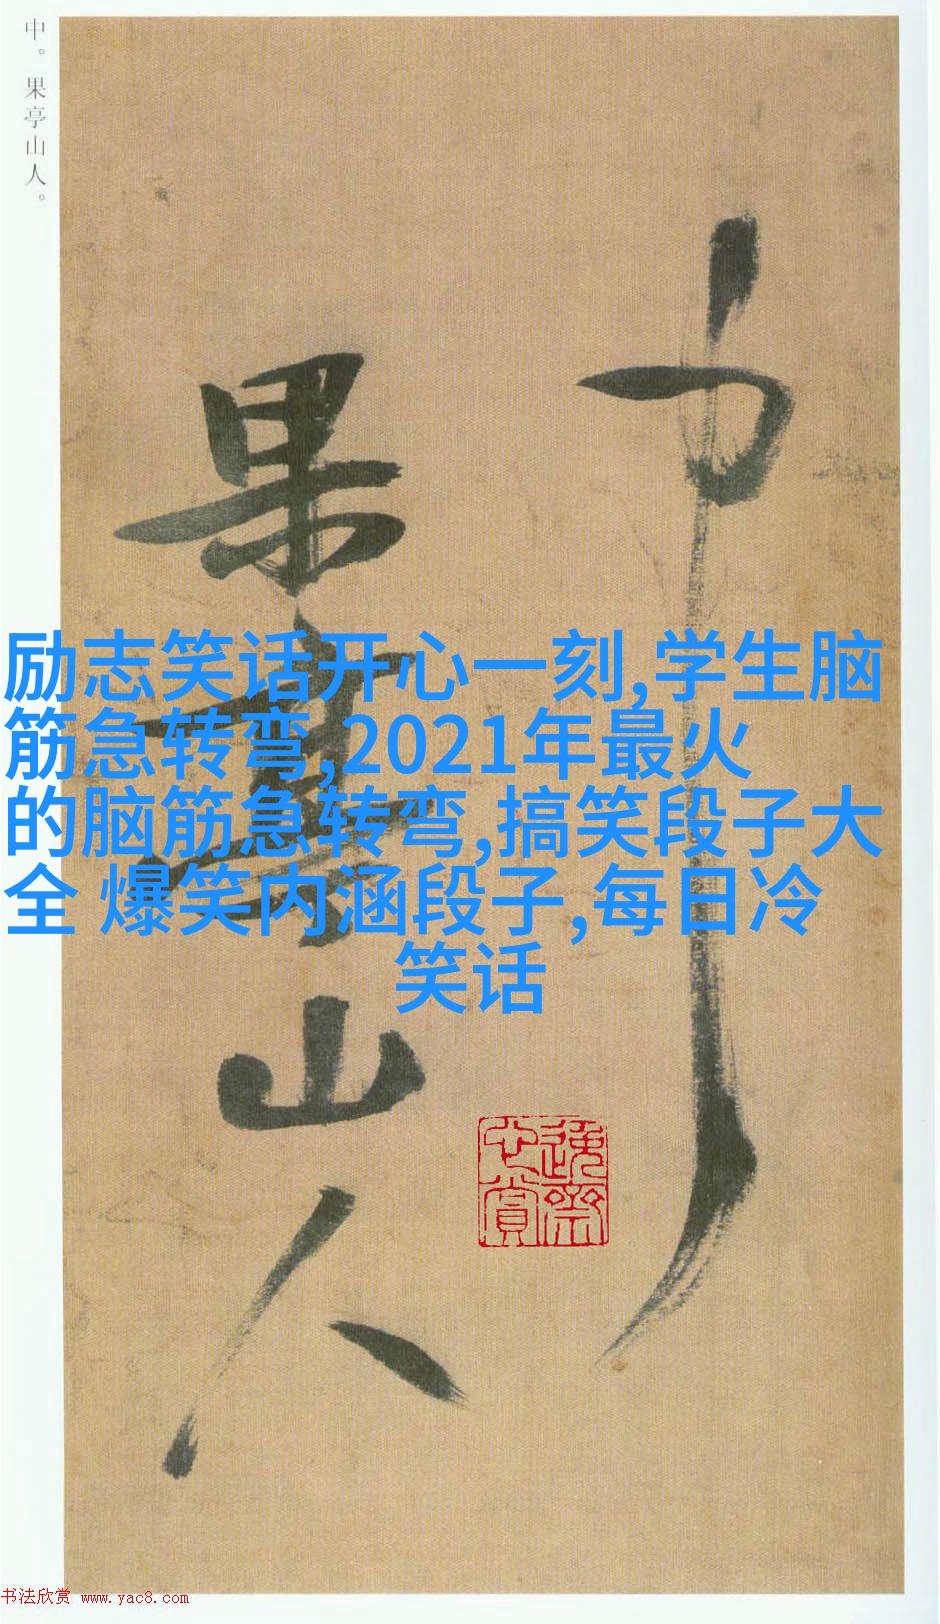 中。果亭山人。
中
果亭山人
励志笑话开心一刻,学生脑
筋急转弯,2021年最火
的脑筋急转弯,搞笑段子大
全 爆笑内涵段子,每日冷
笑话
书法欣赏 www.yac8.com